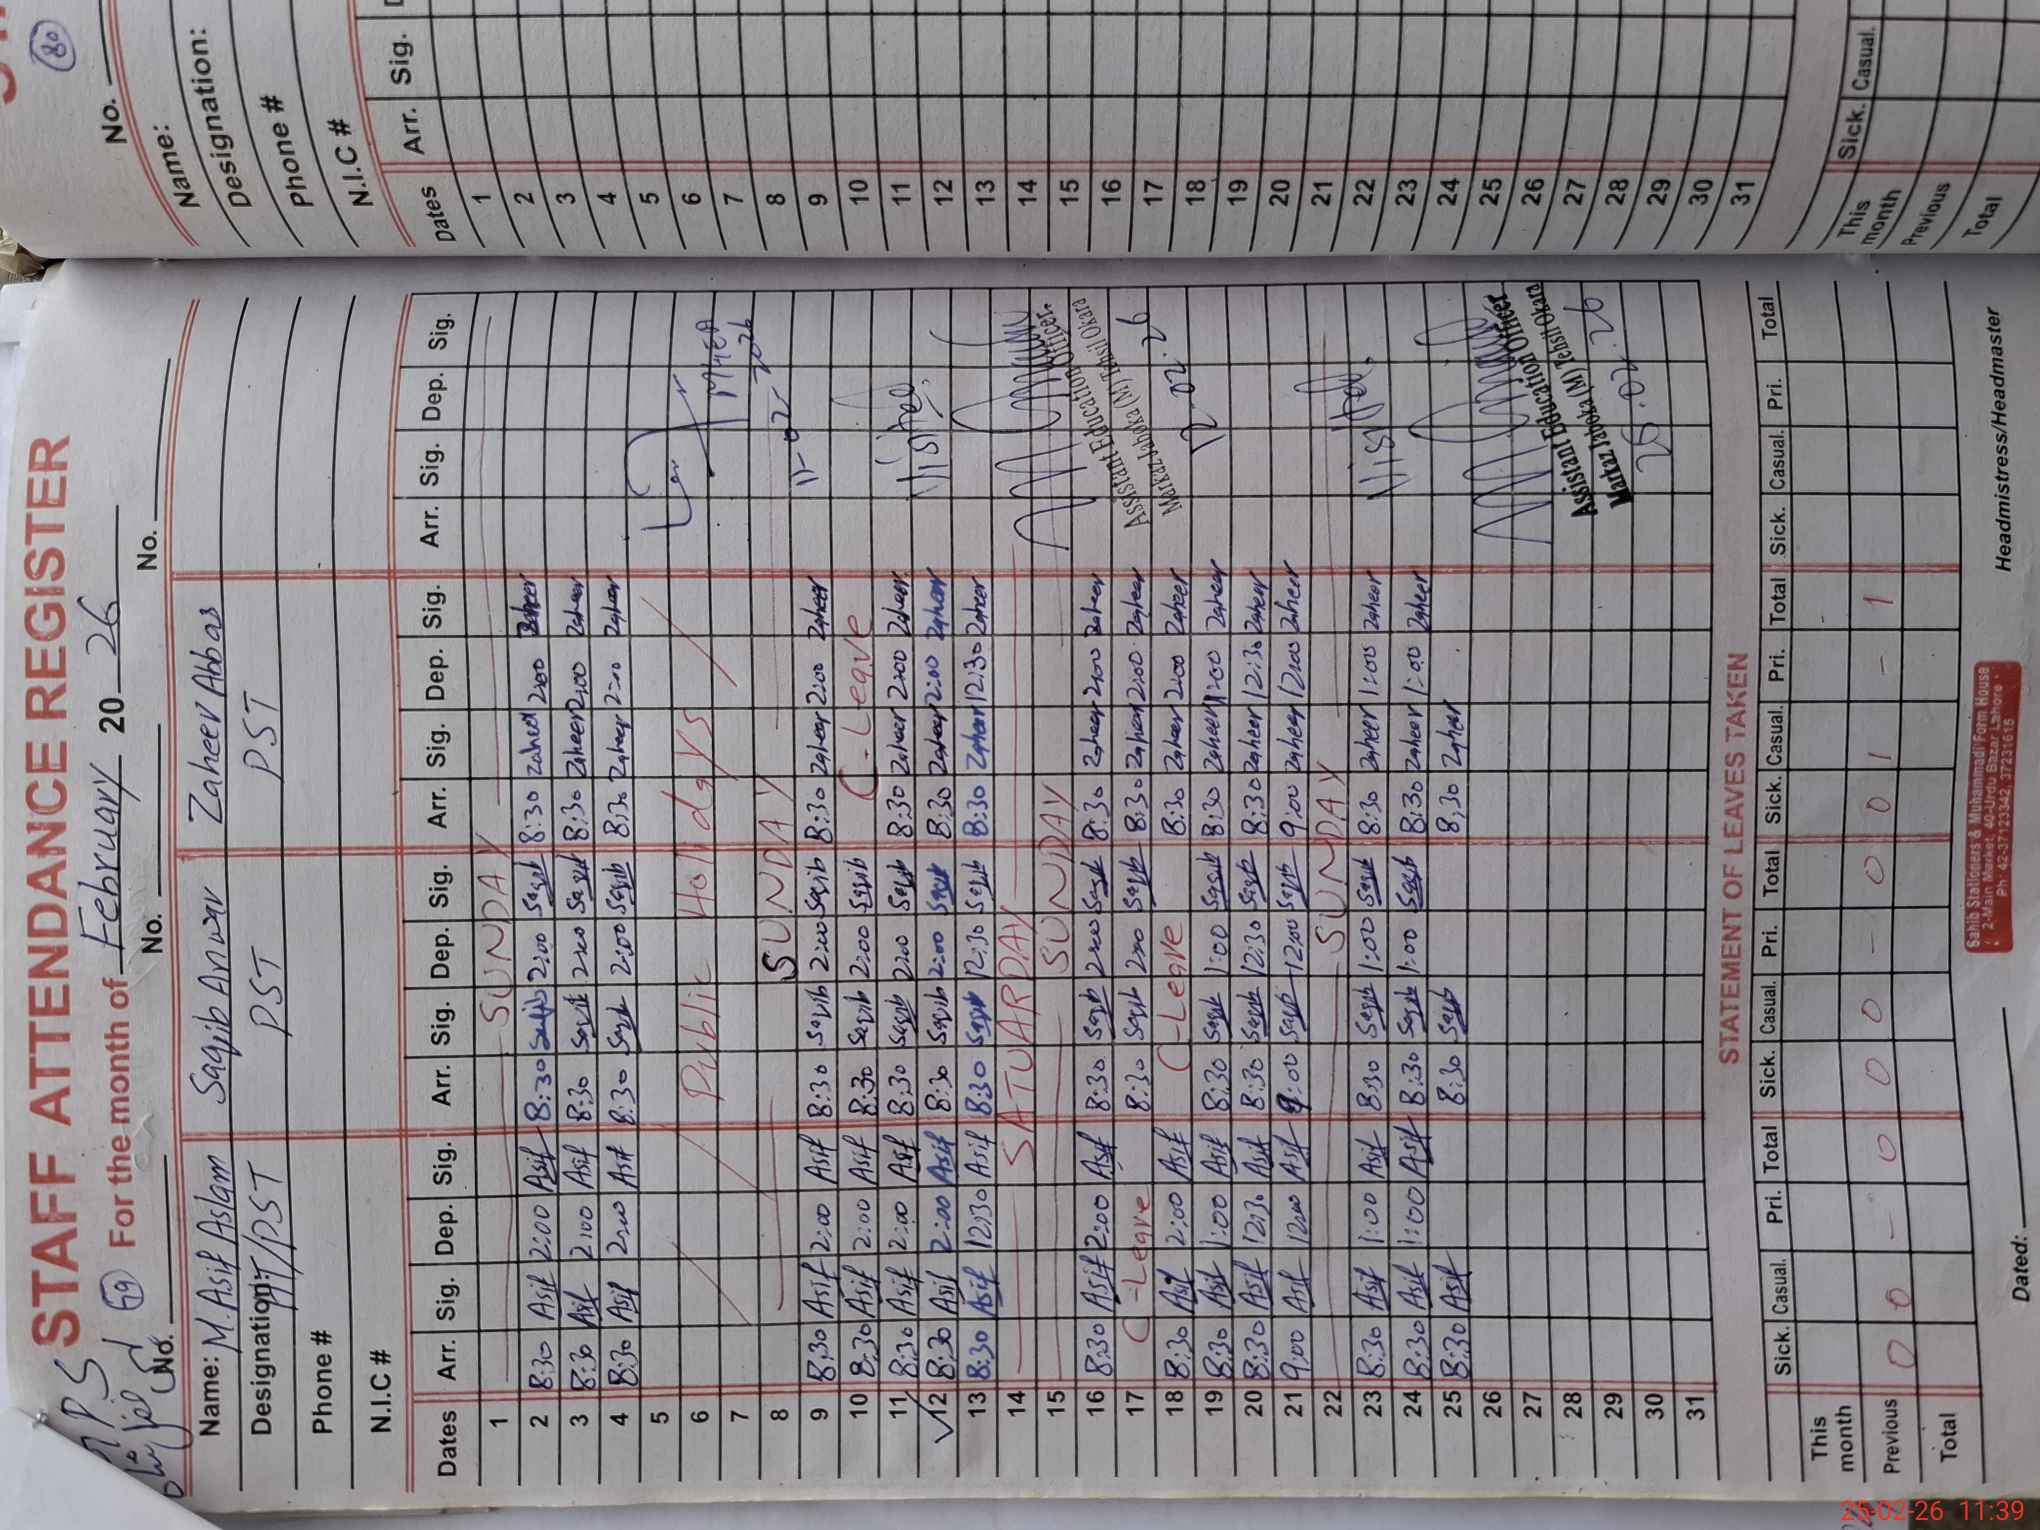 STAFF ATTENDANCE REGISTER
79 For the month of February 2026
No. No. No. No.
Name: M. Asif Aslam Saqib Anwar Zaheer Abbas
Designation: HT/PST PST PST
Phone #
N.I.C #
Dates Arr. Sig. Dep. Sig. Arr. Sig. Dep. Sig. Arr. Sig. Dep. Sig. Arr. Sig. Dep. Sig.
1 SUNDAY
2 8:30 Asif 2:00 Asif 8:30 Saqib 2:00 Saqib 8:30 Zaheer 2:00 Zaheer
3 8:30 Asif 2:00 Asif 8:30 Saqib 2:00 Saqib 8:30 Zaheer 2:00 Zaheer
4 8:30 Asif 2:00 Asif 8:30 Saqib 2:00 Saqib 8:30 Zaheer 2:00 Zaheer
5
6 Public Holidays
7
8 SUNDAY 11-02-2026
9 8:30 Asif 2:00 Asif 8:30 Saqib 2:00 Saqib 8:30 Zaheer 2:00 Zaheer
10 8:30 Asif 2:00 Asif 8:30 Saqib 2:00 Saqib C-Leave
11 8:30 Asif 2:00 Asif 8:30 Saqib 2:00 Saqib 8:30 Zaheer 2:00 Zaheer Visited.
12 8:30 Asif 2:00 Asif 8:30 Saqib 2:00 Saqib 8:30 Zaheer 2:00 Zaheer
13 8:30 Asif 12:30 Asif 8:30 Saqib 12:30 Saqib 8:30 Zaheer 12:30 Zaheer
14 SATUARDAY
15 SUNDAY
16 8:30 Asif 2:00 Asif 8:30 Saqib 2:00 Saqib 8:30 Zaheer 2:00 Zaheer
Assistant Education Officer.
17 C-Leave 8:30 Saqib 2:00 Saqib 8:30 Zaheer 2:00 Zaheer
Markaz Jaboka (M) Tehsil Okara
18 8:30 Asif 2:00 Asif C-Leave 8:30 Zaheer 2:00 Zaheer 12.02.26
19 8:30 Asif 1:00 Asif 8:30 Saqib 1:00 Saqib 8:30 Zaheer 1:00 Zaheer
20 8:30 Asif 12:30 Asif 8:30 Saqib 12:30 Saqib 8:30 Zaheer 12:30 Zaheer
21 9:00 Asif 12:00 Asif 9:00 Saqib 12:00 Saqib 9:00 Zaheer 12:00 Zaheer
22 SUNDAY
23 8:30 Asif 1:00 Asif 8:30 Saqib 1:00 Saqib 8:30 Zaheer 1:00 Zaheer Visited.
24 8:30 Asif 1:00 Asif 8:30 Saqib 1:00 Saqib 8:30 Zaheer 1:00 Zaheer
25 8:30 Asif 8:30 Saqib 8:30 Zaheer
26
27
Assistant Education Officer
28
Markaz Jaboka (M) Tehsil Okara
29 25.02.26
30
31
STATEMENT OF LEAVES TAKEN
Sick. Casual. Pri. Total Sick. Casual. Pri. Total Sick. Casual. Pri. Total Sick. Casual. Pri. Total
This month
Previous 0 0 - 0 0 0 - 0 0 1 - 1
Total
Sahib Stationers & Muhammadi Form House
2-Main Market, 40-Urdu Bazar Lahore
Ph: 42-37123342, 37231615
Dated: Headmistress/Headmaster
80
No.
Name:
Designation:
Phone #
N.I.C #
Dates Arr. Sig.
1
2
3
4
5
6
7
8
9
10
11
12
13
14
15
16
17
18
19
20
21
22
23
24
25
26
27
28
29
30
31
Sick. Casual.
This month
Previous
Total
25-02-26 11:39